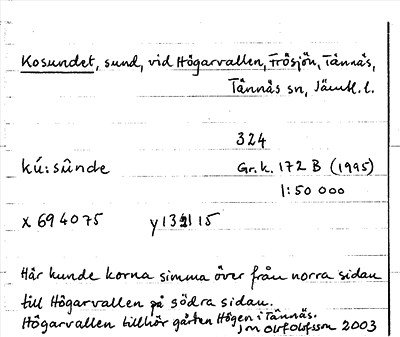 Kosundet, sund, vid Högarvallen, Frösjön, Tännäs,
Tännäs sn, Jämtl. l.
324
kú:sûnde Gr.k. 172 B (1995)
1:50 000
x 694075 y 132115
Här kunde korna simma över från norra sidan
till Högarvallen på södra sidan.
Högarvallen tillhör gården Högen i Tännäs.
Jm Olof Olofsson 2003